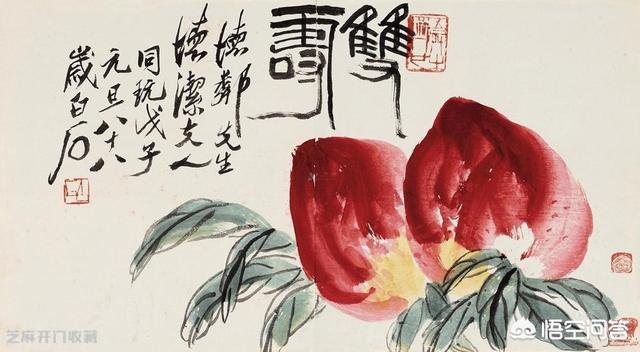 雙壽
德鄰先生
德潔夫人
同玩戊子
元旦八十八
歲白石
芝麻开门收藏
悟空问答